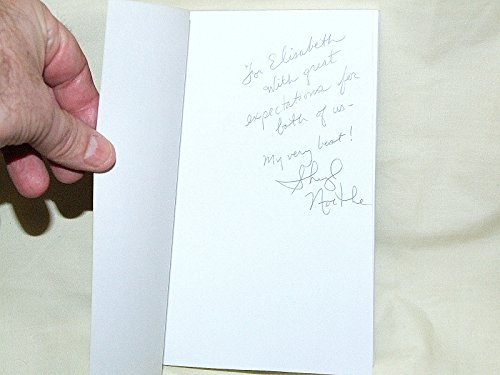 For Elisabeth
With great
expectations for
both of us-
My very best!